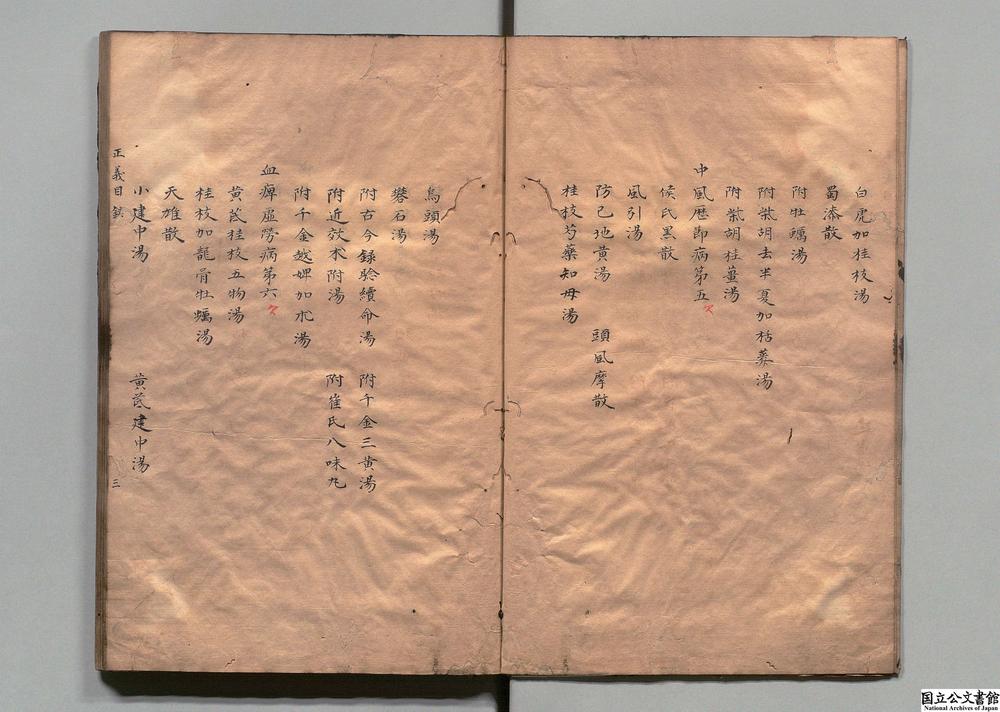 白虎加桂枝湯
蜀漆散
附牡蠣湯
附柴胡去半夏加栝蔞湯
附柴胡桂薑湯
中風歷節病第五
侯氏黑散
風引湯
防己地黄湯 頭風摩散
桂枝芍藥知母湯
烏頭湯
礬石湯
附古今録驗續命湯 附千金三黄湯
附近效朮附湯 附崔氏八味丸
附千金越婢加朮湯
血痺虛勞病第六
黄芪桂枝五物湯
桂枝加龍骨牡蠣湯
天雄散
小建中湯 黄芪建中湯
正義目録 三
国立公文書館
National Archives of Japan